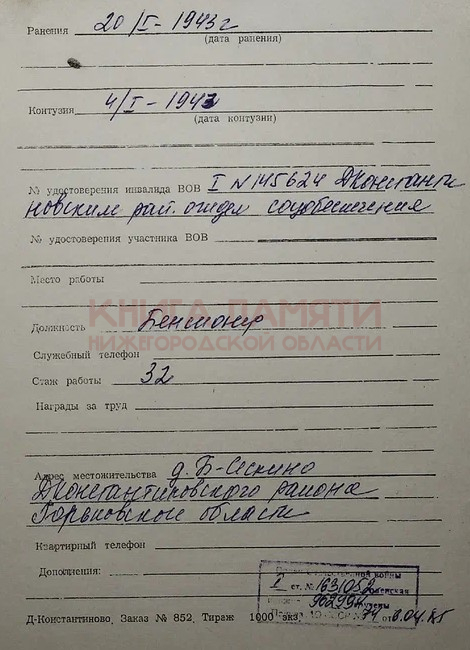 Ранения 20/I-1943г
(дата ранения)
Контузия 4/I-1943
(дата контузии)
№ удостоверения инвалида ВОВ I №145624 ДКонстанти
новским рай. отдел соцобеспечения
№ удостоверения участника ВОВ
Место работы
КНИГА ПАМЯТИ
Должность Пенсионер
НИЖЕГОРОДСКОЙ ОБЛАСТИ
Служебный телефон
Стаж работы 32
Награды за труд
Адрес местожительства д. Б-Сескино
ДКонстантиновского района
Горьковской области
Квартирный телефон
Дополнения: войны
I ст. № 1631052
962994
Д-Константиново, Заказ № 852, Тираж 1000 экз. от 6.04.85